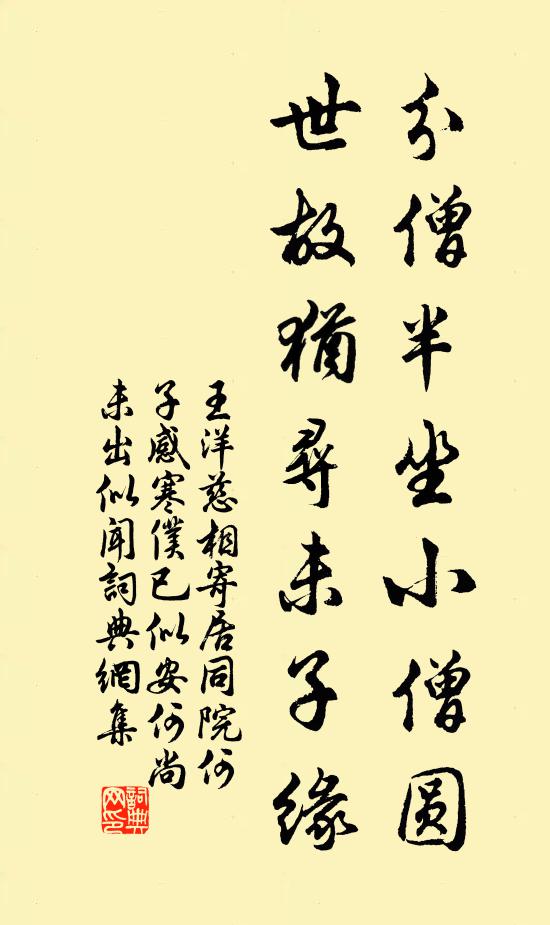 分僧半坐小僧圆
世故猶尋未子緣
王洋慈相寄居同院何
子感寒僕已似安何尚
未出似聞詞典網集
詞典
网印